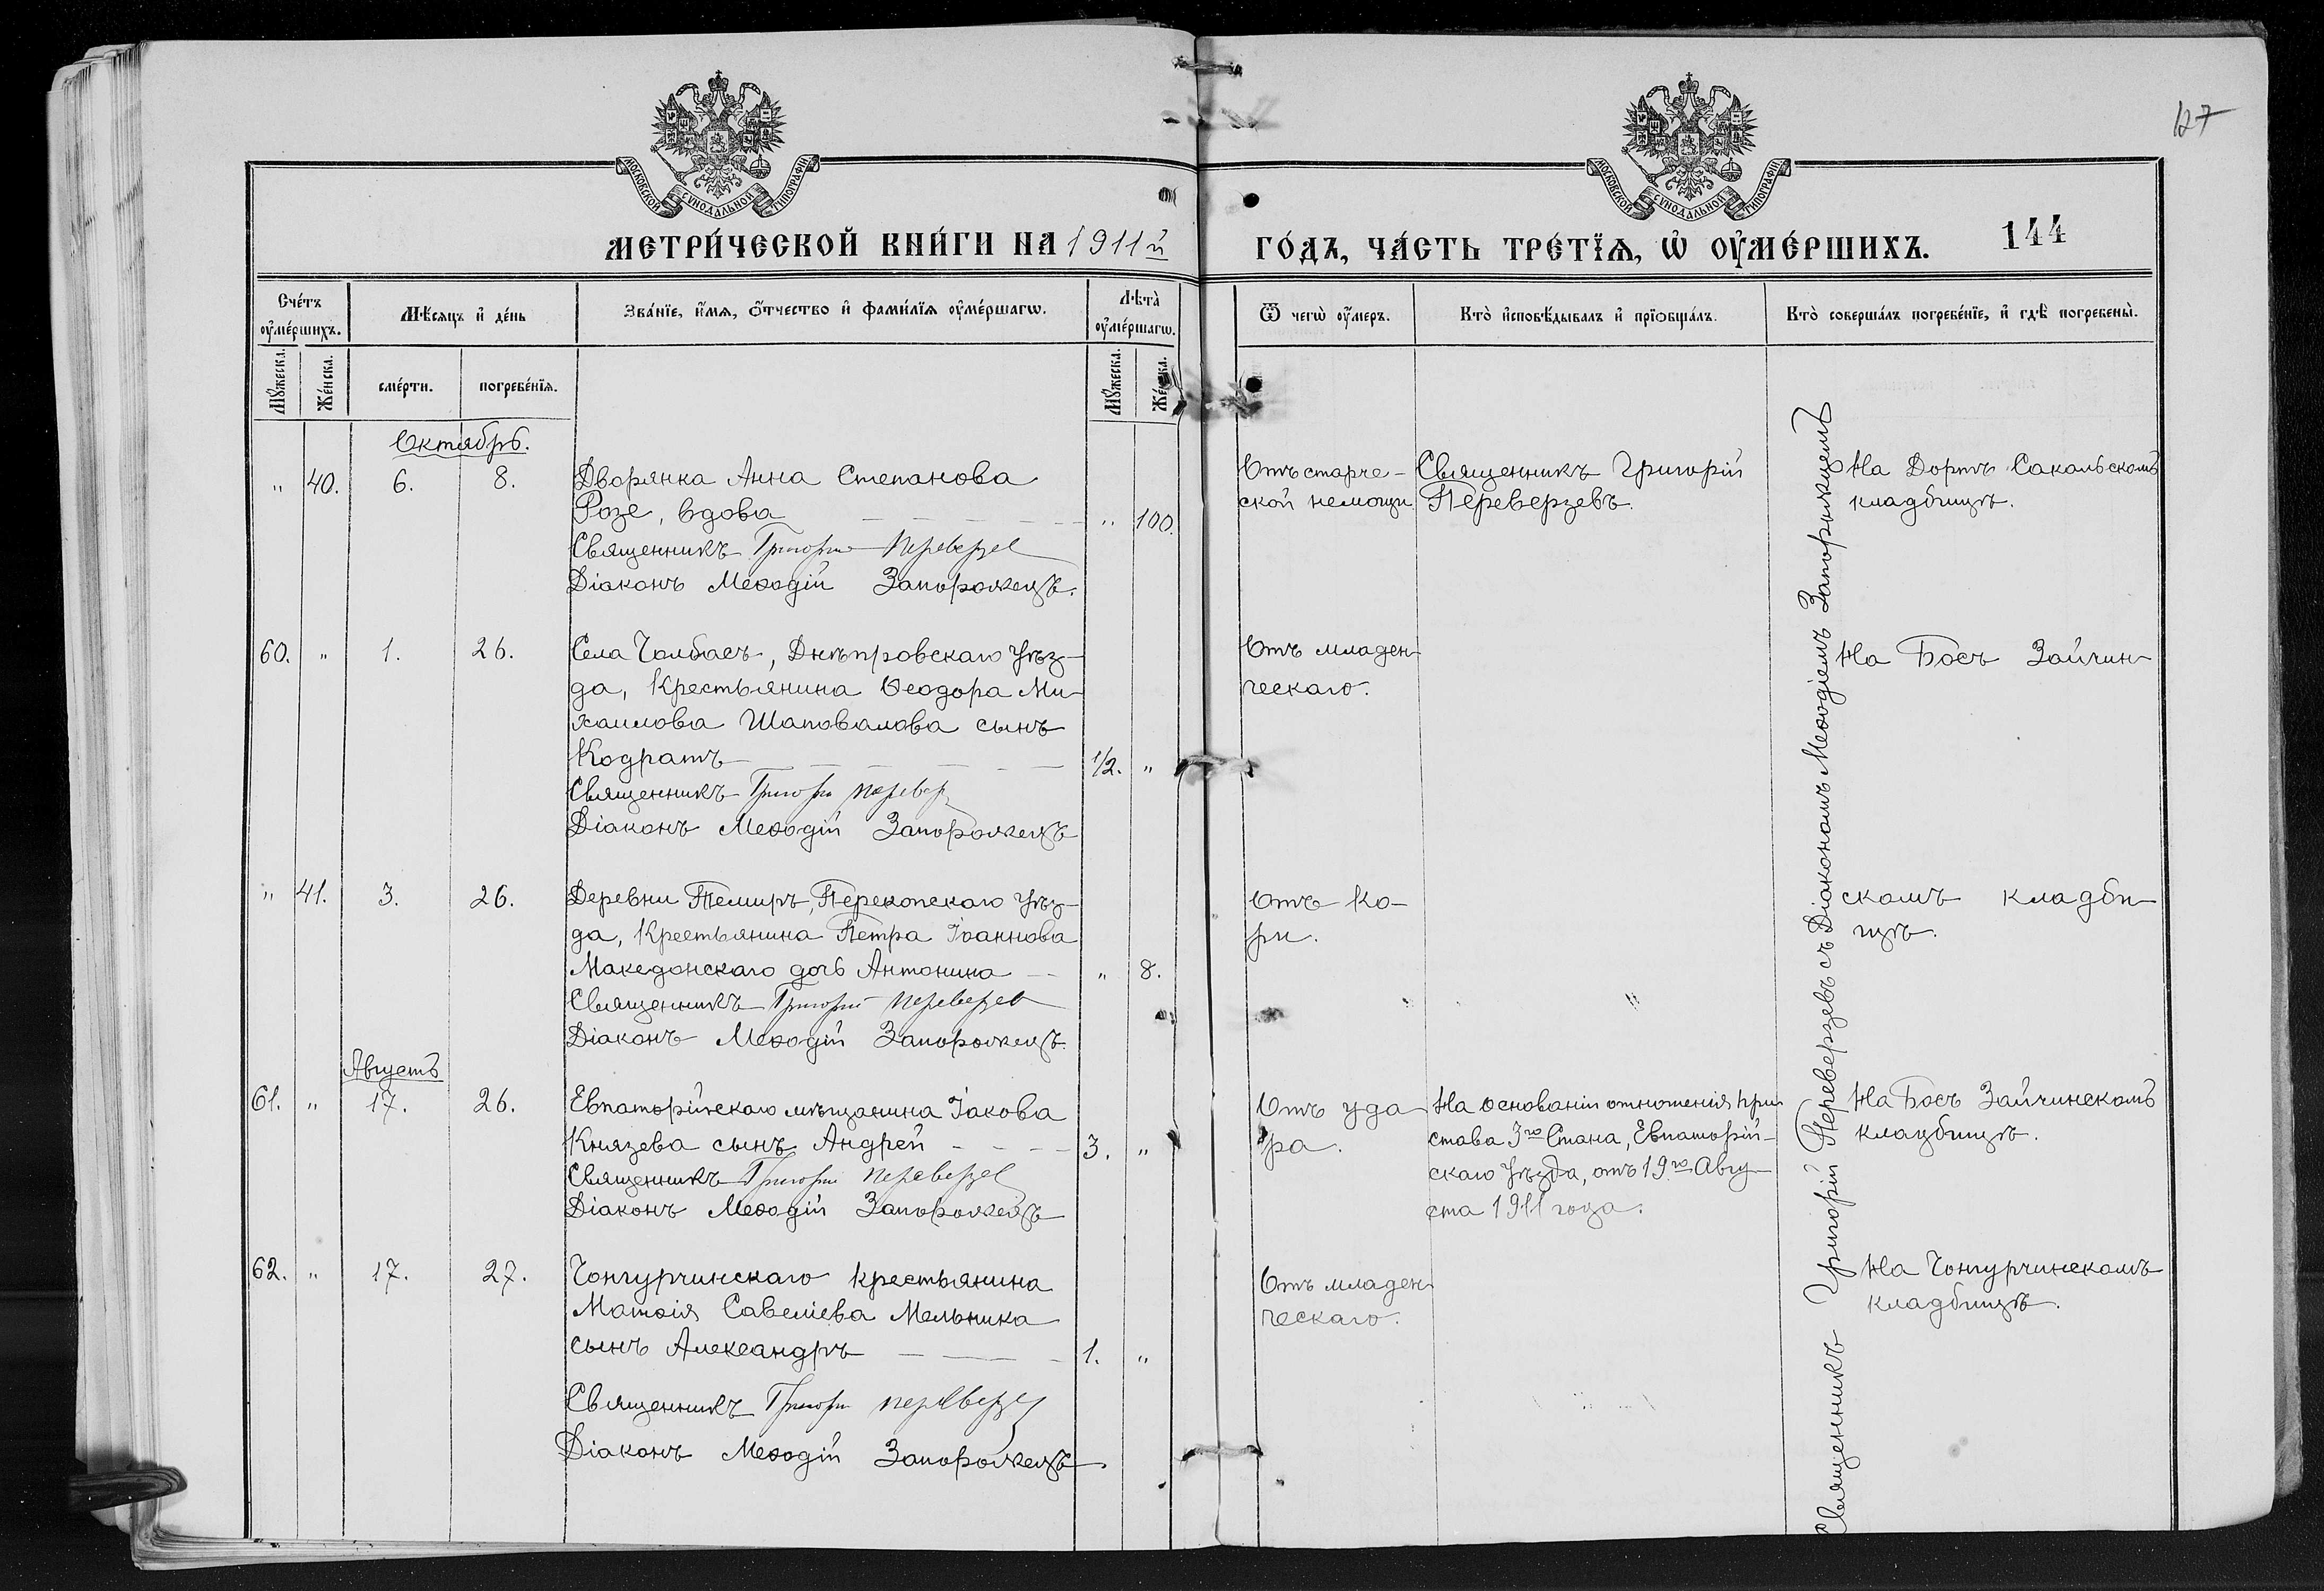 127
МОСКОВСКОЙ СѴНОДАЛЬНОЙ ТИПОГРАФІИ
МОСКОВСКОЙ СѴНОДАЛЬНОЙ ТИПОГРАФІИ
МЕТРИ́ЧЕСКОЙ КНИ́ГИ НА 1911й
ГО́ДЪ, ЧА́СТЬ ТРЕ́ТЇѦ, Ѡ҆ ОУ҆МЕ́РШИХЪ.
144
Сче́тъ оу҆ме́ршихъ.
Мѣ́сяцъ и҆ де́нь
Зва́нїе, и҆́мѧ, ѻ҆́тчество и҆ фами́лїѧ оу҆ме́ршагѡ.
Лѣта̀ оу҆ме́ршагѡ.
Ѿ чегѡ̀ оу҆́меръ.
Кто̀ и҆сповѣ́дывалъ и҆ прїѻбща́лъ.
Кто̀ соверша́лъ погребе́нїе, и҆ гдѣ̀ погребены̀.
Мꙋ́жеска.
Же́нска.
сме́рти.
погребе́нїѧ.
Мꙋ́жеска.
Же́нска.
Октябрь.
" 40. 6. 8. Дворянка Анна Степанова
Розе, вдова " 100.
Священникъ Григорій Переверзев
Діаконъ Меѳодій Запорожецъ.
Отъ старче-
ской немощи.
Священникъ Григорій
Переверзевъ.
На Дортъ Сакальскомъ
кладбищѣ.
60. " 1. 26. Села Чолбасъ, Днѣпровскаго уѣз-
да, Крестьянина Ѳеодора Ми-
хаилова Шаповалова сынъ
Кодратъ 1/2. "
Священникъ Григорій Перевер
Діаконъ Меѳодій Запорожецъ
Отъ младен-
ческаго.
На Босъ Зайчин-
" 41. 3. 26. Деревни Темиръ, Перекопскаго уѣз-
да, Крестьянина Петра Іоаннова
Македонскаго дочь Антонина " 8.
Священникъ Григорій Переверзев
Діаконъ Меѳодій Запорожецъ.
Отъ ко-
ри.
скомъ кладби-
щѣ.
Августъ
61. " 17. 26. Евпаторійскаго мѣщанина Іакова
Князева сынъ Андрей 3. "
Священникъ Григорій Переверзев
Діаконъ Меѳодій Запорожецъ
Отъ уда
ра.
На основаніи отношенія при
става 3го Стана, Евпаторій-
скаго уѣзда, отъ 19го Авгу-
ста 1911 года.
На Босъ Зайчинскомъ
кладбищѣ.
62. " 17. 27. Чонгурчинскаго крестьянина
Матѳія Савеліева Мельника
сынъ Александръ 1. "
Священникъ Григорій Переверзев
Діаконъ Меѳодій Запорожецъ
Отъ младен
ческаго.
На Чонгурчинскомъ
кладбищѣ.
Священникъ Григорій Переверзевъ съ Діакономъ Меѳодіемъ Запорожцемъ